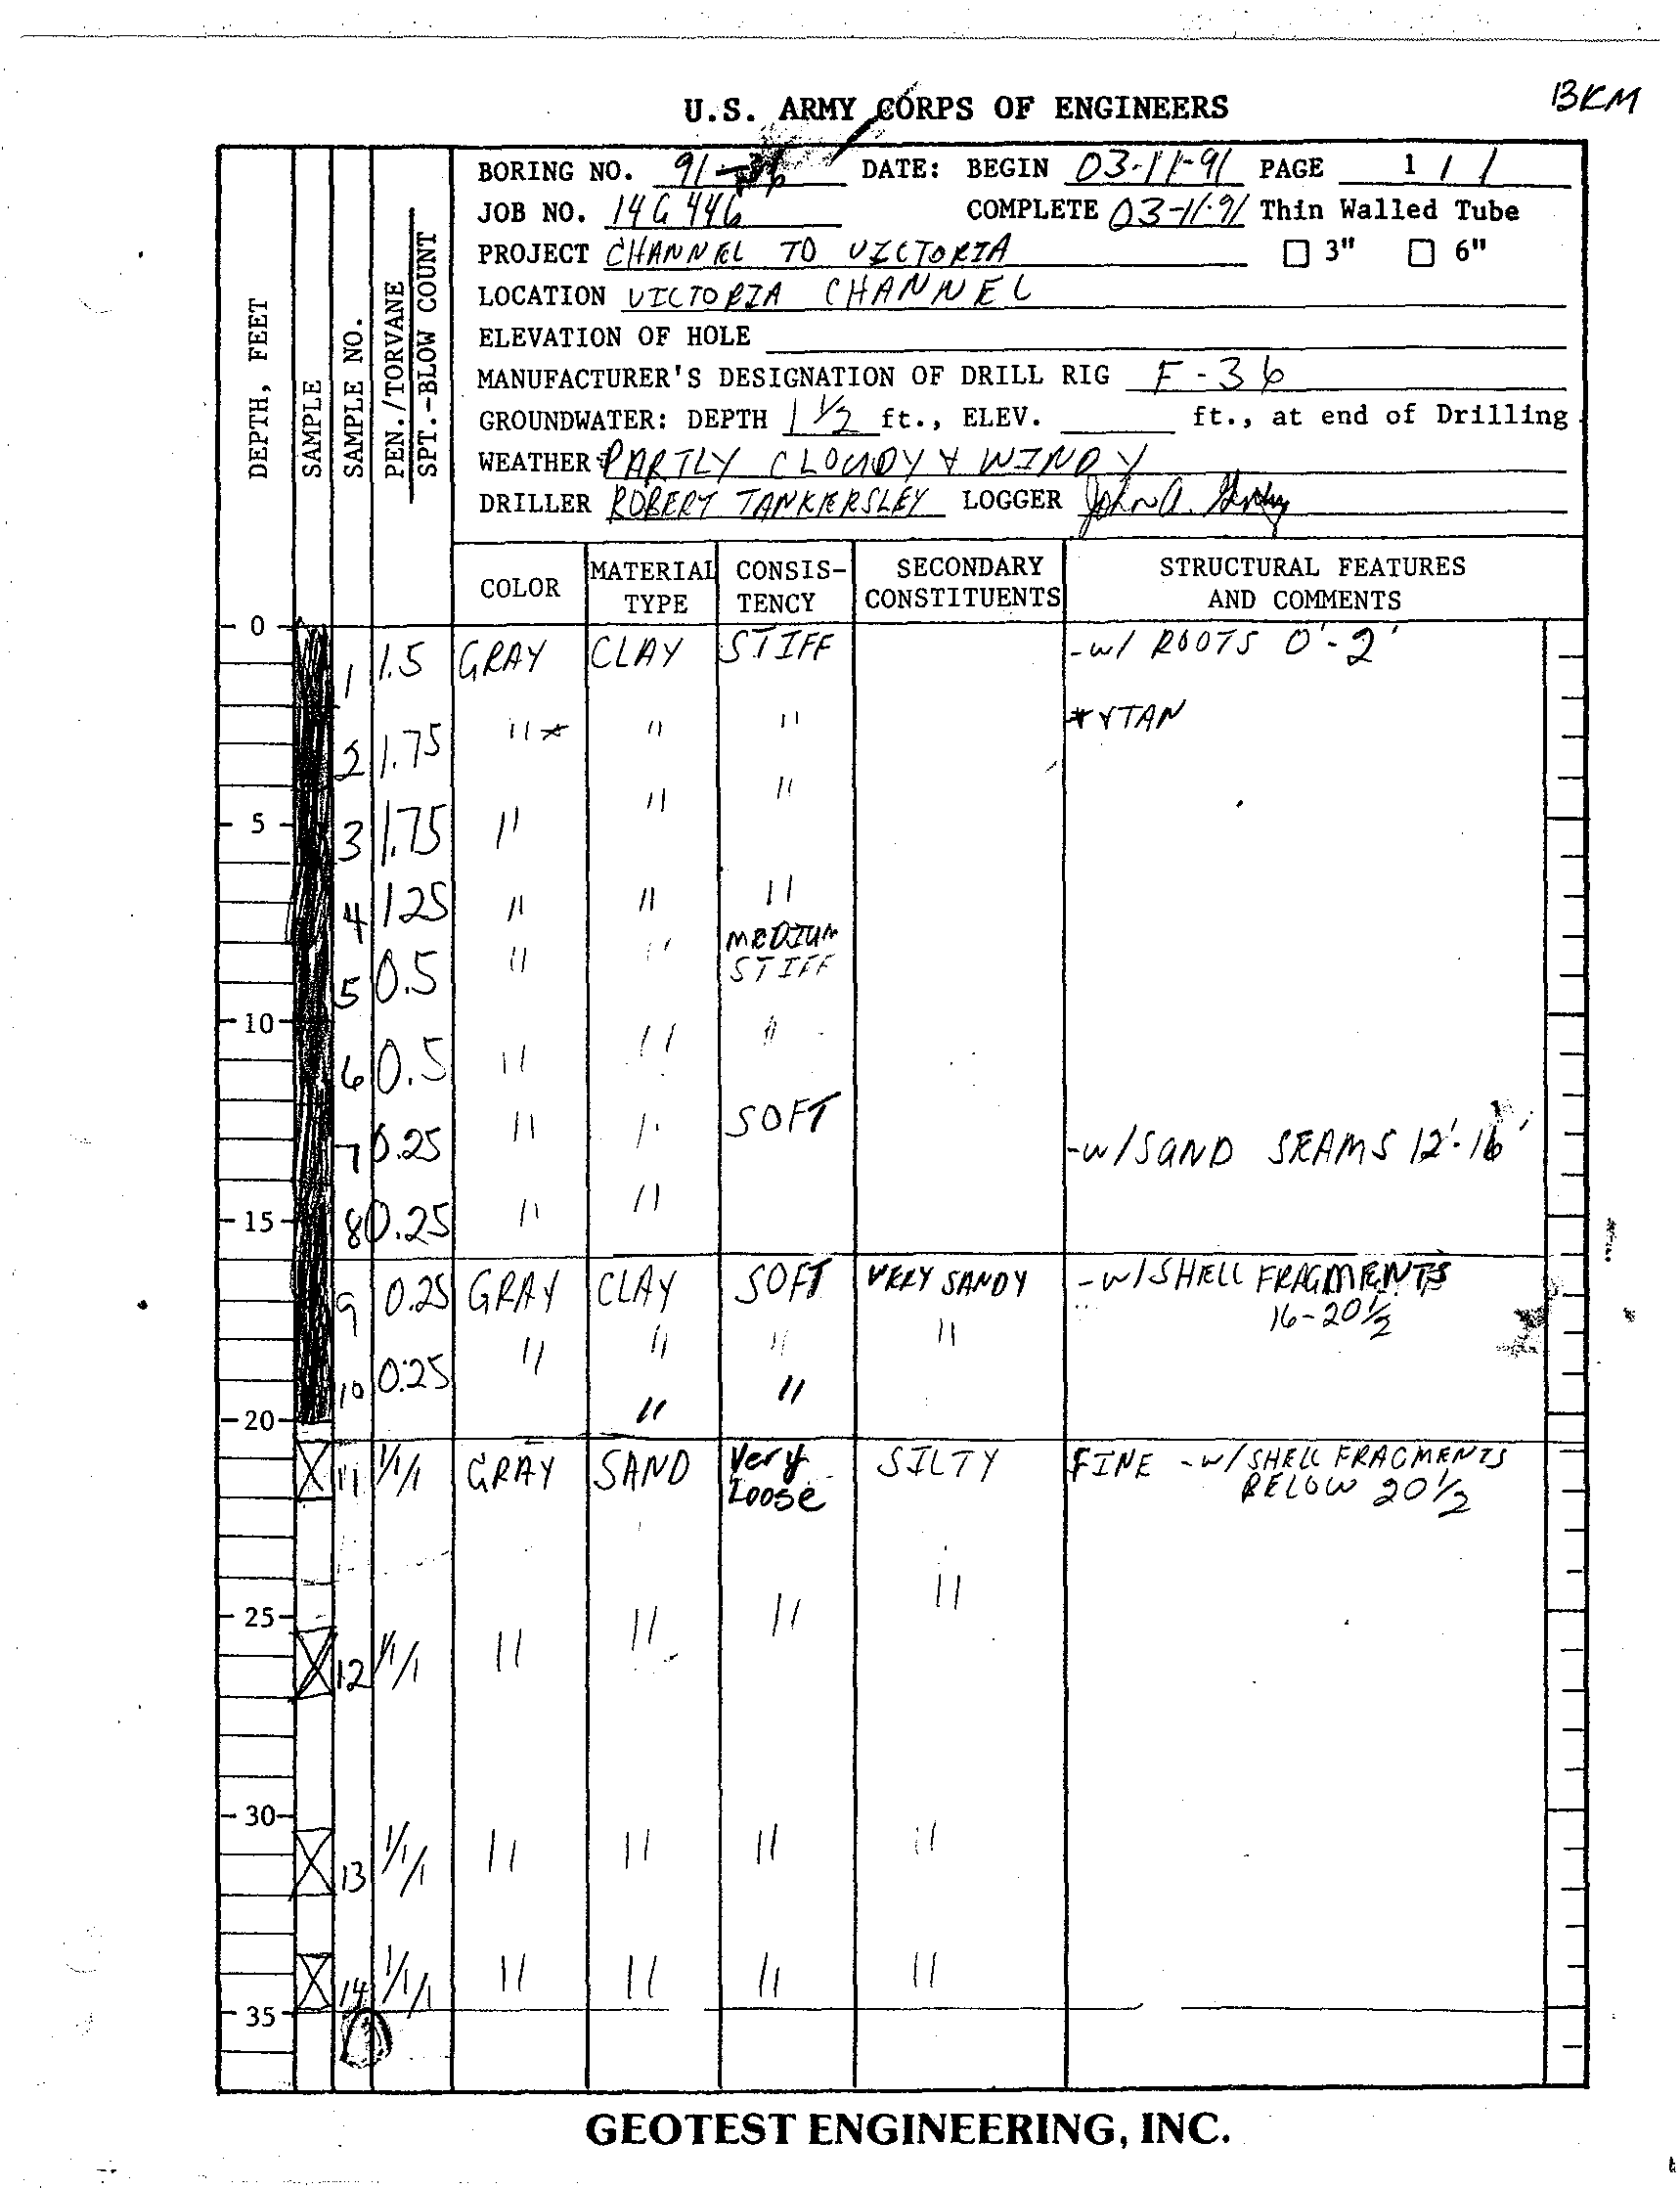 BKM
U.S. ARMY CORPS OF ENGINEERS
BORING NO. 91- DATE: BEGIN 03-11-91 PAGE 1 / 1
JOB NO. 14G446 COMPLETE 03-11-91 Thin Walled Tube
PROJECT CHANNEL TO VICTORIA □ 3" □ 6"
LOCATION VICTORIA CHANNEL
ELEVATION OF HOLE
MANUFACTURER'S DESIGNATION OF DRILL RIG F-36
GROUNDWATER: DEPTH 1 1/2 ft., ELEV. ft., at end of Drilling
WEATHER PARTLY CLOUDY & WINDY
DRILLER ROBERT TANKERSLEY LOGGER John A.
DEPTH, FEET
SAMPLE
SAMPLE NO.
PEN./TORVANE
SPT.-BLOW COUNT
COLOR MATERIAL TYPE CONSIS-TENCY SECONDARY CONSTITUENTS STRUCTURAL FEATURES AND COMMENTS
0
1 1.5 GRAY CLAY STIFF -w/ ROOTS 0'-2'
2 1.75 "* " " *&TAN
5
3 1.75 " " "
4 1.25 " " "
5 0.5 " " MEDIUM STIFF
10
6 0.5 " " "
7 0.25 " " SOFT -w/SAND SEAMS 12'-16'
15
8 0.25 " "
9 0.25 GRAY CLAY SOFT VERY SANDY -w/SHELL FRAGMENTS
16-20 1/2
10 0.25 " " " "
" "
20
11 1/1/1 GRAY SAND Very Loose SILTY FINE -w/SHELL FRAGMENTS
BELOW 20 1/2
25
12 1/1/1 " " " "
30
13 1/1/1 " " " "
14 1/1/1 " " " "
35
GEOTEST ENGINEERING, INC.